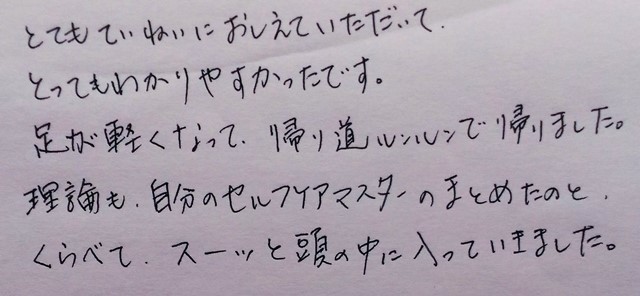 とてもていねいにおしえていただいて、
とってもわかりやすかったです。
足が軽くなって、帰り道ルンルンで帰りました。
理論も、自分のセルフケアマスターのまとめたのと、
くらべて、スーッと頭の中に入っていきました。